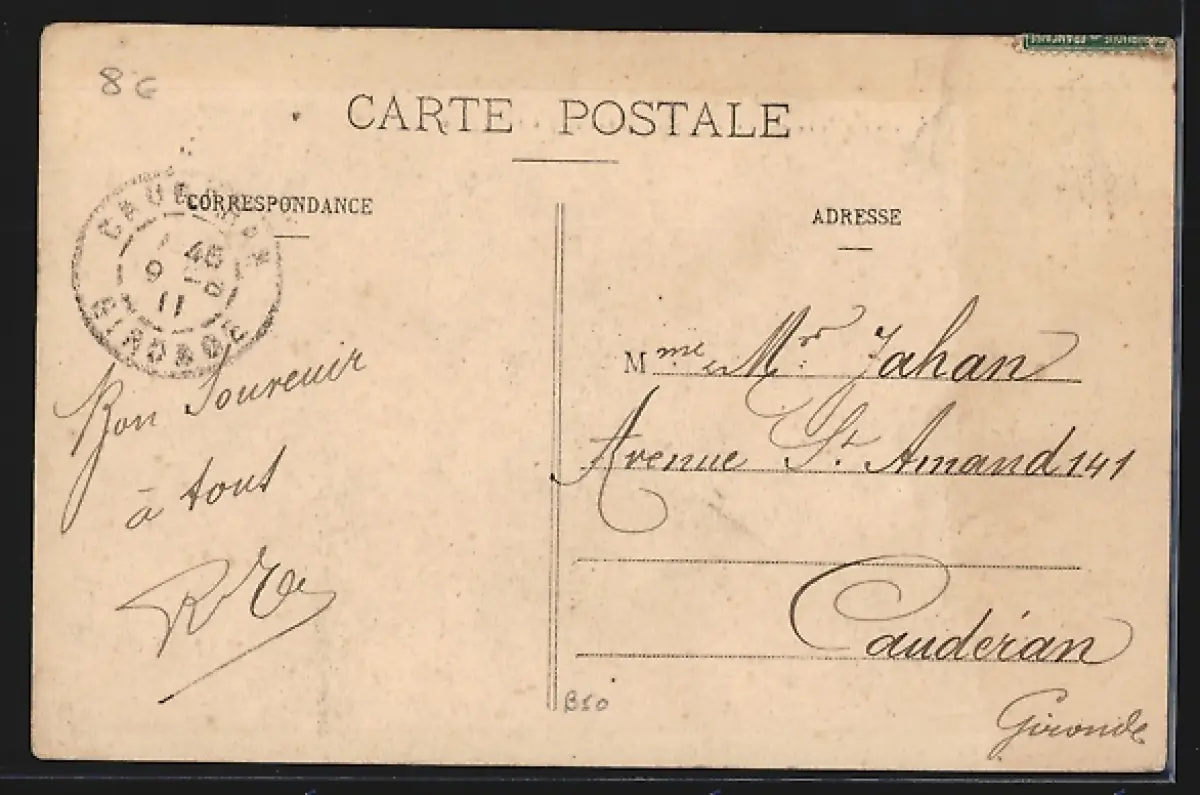 8G
CARTE POSTALE
CORRESPONDANCE
ADRESSE
45
9 -8
11
GIRONDE
Bon Souvenir
à tous
Mme Mr. Jahan
Avenue St. Amand 141
Caudéran
Gironde
B50